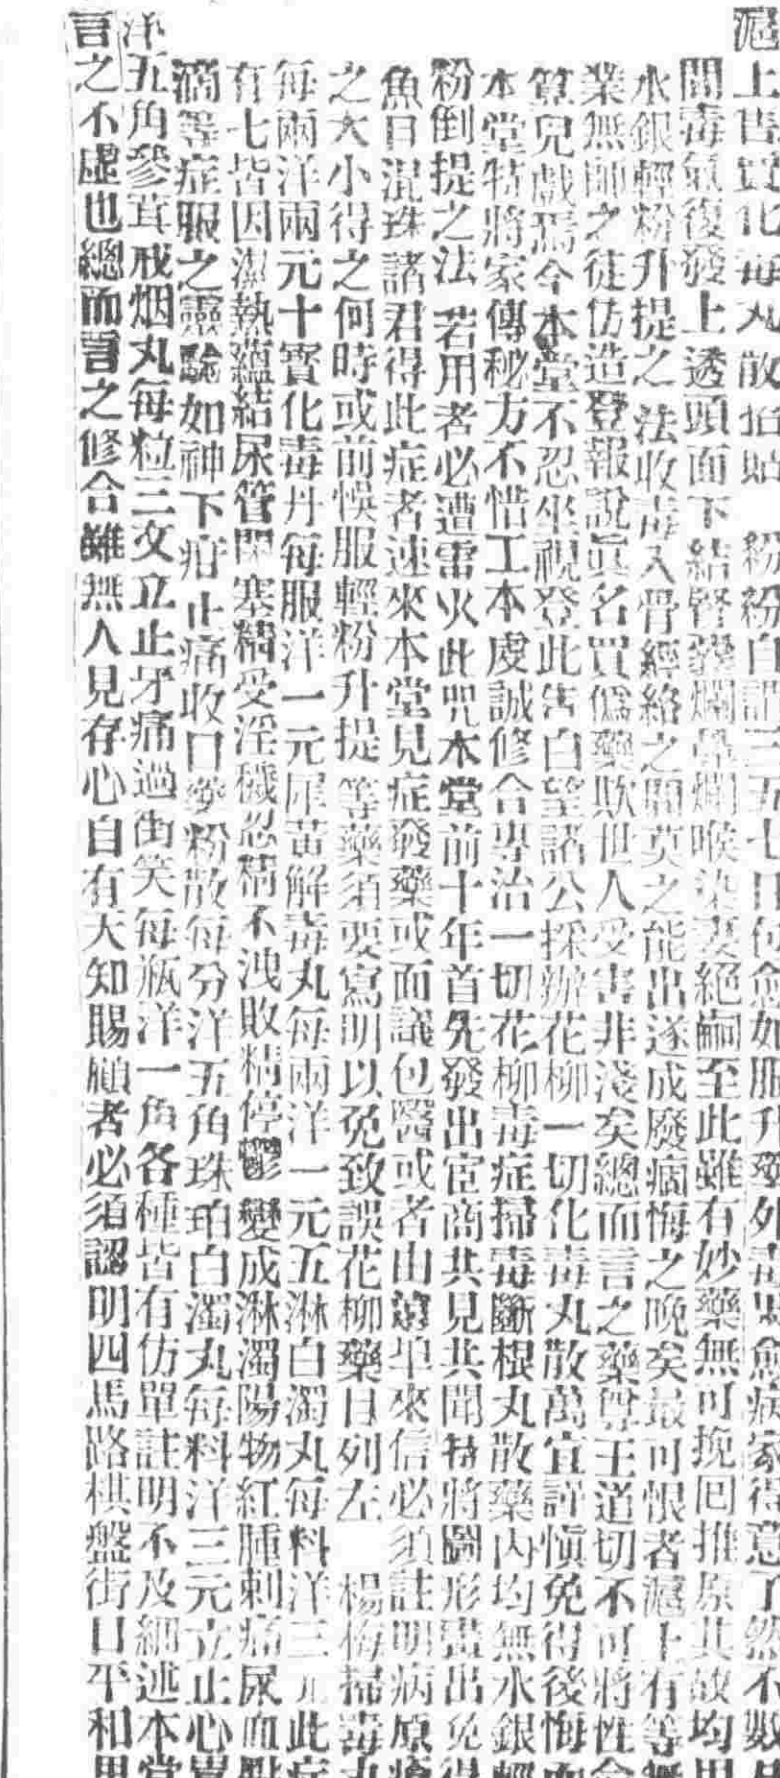 滬上售賣化毒丸散招貼　紛紛自謂三五七日包愈如服升藥外毒思愈病家得意了然不數月
間毒氣復發上透頭面下結腎發爛鼻爛喉染妻絕嗣至此雖有妙藥無可挽囘推原其故均用
水銀輕粉升提之法收毒入骨經絡之間莫之能出遂成廢痼悔之晚矣最可恨者滬上有等無
業無師之徒仿造登報說眞名買僞藥欺世人受害非淺矣總而言之藥尊王道切不可將性命
算兒戲焉今本堂不忍坐視登此告白望諸公採辦花柳一切化毒丸散萬宜詳愼免得後悔
本堂特將家傳秘方不惜工本虔誠修合專治一切花柳毒症掃毒斷根丸散藥內均無水銀輕
粉倒提之法若用者必遭雷火此咒本堂前十年首先發出宦商共見共聞特將圖形畫出免得
魚目混珠諸君得此症者速來本堂見症發藥或面議包醫或者由演埠來信必須註明病原瘡
之大小得之何時或前悞服輕粉升提等藥須要寫明以免致誤花柳藥目列左　楊梅掃毒丸
每兩洋兩元十寶化毒丹每服洋一元犀黃解毒丸每兩洋一元五淋白濁丸每料洋三元此症
有七皆因濕熱蘊結尿管閉塞精受淫穢忍精不洩敗精停鬱變成淋濁陽物紅腫刺痛尿血點
滴等症服之靈驗如神下疳止痛收口藥粉散每分洋五角珠珀白濁丸每料洋三元立止心胃
洋五角參茸戒烟丸每粒三文立止牙痛過街笑每瓶洋一角各種皆有仿單註明不及細述本堂
言之不虛也總而言之修合雖無人見存心自有天知賜顧者必須認明四馬路棋盤街口平和里